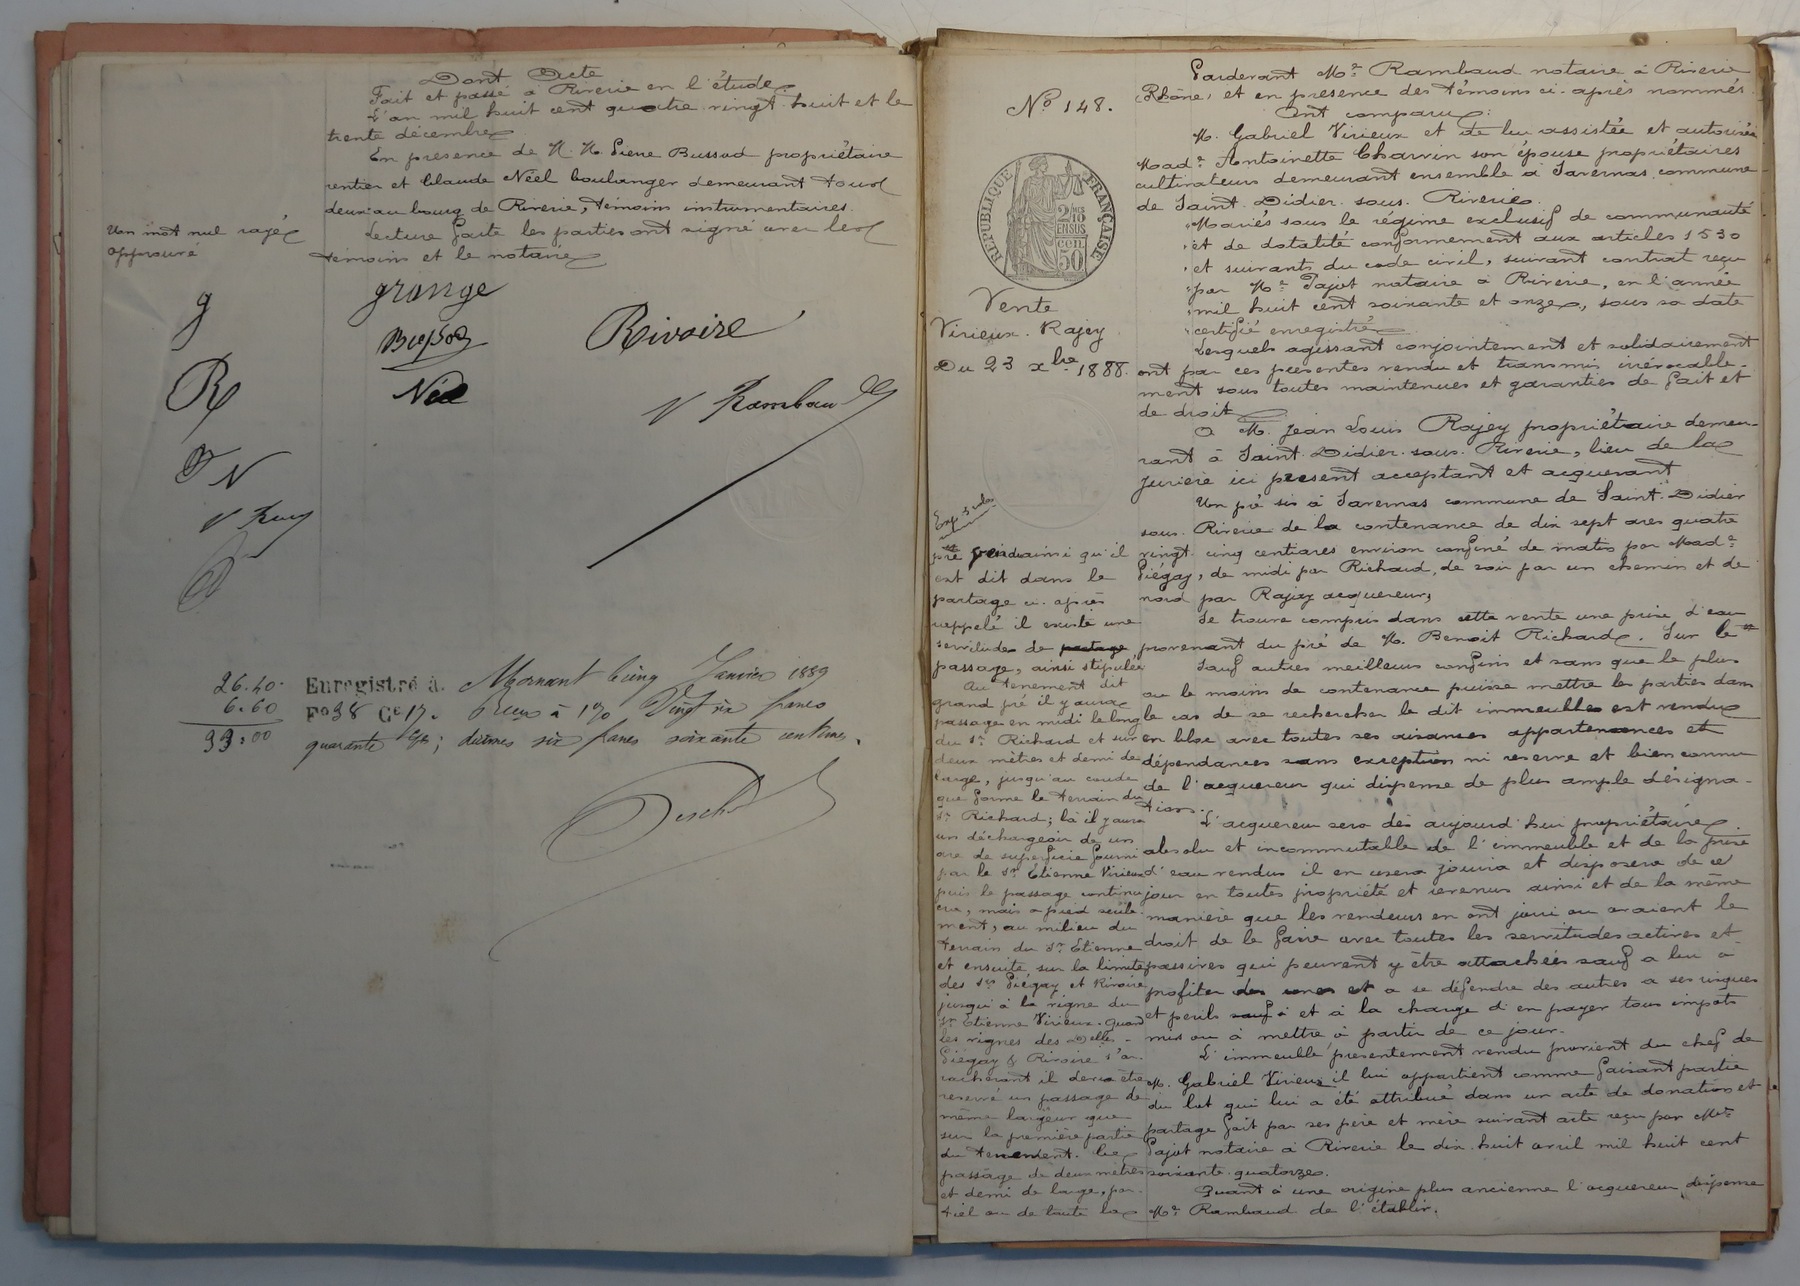 Dont Acte
Fait et passé à Riverie en l'étude
L'an mil huit cent quatre vingt huit et le
trente décembre
En presence de M. M. Pierre Bussod propriétaire
rentier et Claude Néel boulanger demeurant tous
deux au bourg de Riverie, témoins instrumentaires.
Lecture faite les parties ont signé avec les
témoins et le notaire
Un mot nul rayé
approuvé
g
grange
Bussod
Rivoire
R
Néel
V Rambaud
N
26.40.
6.60
33.00
Enregistré à Mornant cinq Janvier 1889
Fo 38 Ce 17. Reçu à 1% Vingt six francs
quarante c.; décimes six francs soixante centimes.
No 148.
REPUBLIQUE FRANÇAISE
2/10 EN SUS
50 cen
Vente
Virieux. Rajey
Du 23 xbre 1888.
pré ainsi qu'il
est dit dans le
partage ci-après
rappelé il existe une
servitude de partage
passage, ainsi stipulée
Au tenement dit
grand pré il y aura
passage en midi le long
du Sr Richard et sur
deux mètres et demi de
large, jusqu'au coude
que forme le terrain du
Sr Richard; là il y aura
un déchargeoir de un
are de superficie fourni
par le Sr Etienne Virieux
puis le passage continu
era, mais a pied seule
ment, au milieu du
terrain du Sr Etienne
et ensuite sur la limite
des Srs Piégay et Rivoire
jusqu'à la vigne du
Sr Etienne Virieux. Quand
les vignes des Delles
Piégay & Rivoire s'ar
racheront il devra être
reservé un passage de
même largeur que
sur la première partie
du tenement. Le
passage de deux mètres
et demi de large, par
Pardevant Me Rambaud notaire à Riverie
(Rhône) et en présence des témoins ci-après nommés.
Ont comparu:
M. Gabriel Virieux et de lui assistée et autorisée
Made Antoinette Charvin son épouse propriétaires
cultivateurs demeurant ensemble à Savernas commune
de Saint. Didier. sous. Riverie.
"Mariés sous le régime exclusif de communauté
"et de dotalité conformement aux articles 1530
"et suivants du code civil, suivant contrat reçu
"par Me Pajot notaire à Riverie, en l'année
"mil huit cent soixante et onze, sous sa date
"certifié enregistré
Lesquels agissant conjointement et solidairement
ont par ces présentes vendu et transmis irrévocable-
ment sous toutes maintenues et garanties de fait et
de droit
A M. Jean Louis Rajey propriétaire demeu-
rant à Saint. Didier. sous. Riverie, lieu de la
Juriere ici présent acceptant et acquerant
Un pré sis à Savernas commune de Saint. Didier
sous. Riverie de la contenance de dix sept ares quatre
vingt. cinq centiares environ confiné de matin par Made
Piégay, de midi par Richard, de soir par un chemin et de
nord par Rajey acquereur,
Se trouve compris dans cette vente une prise d'eau
provenant du pré de M. Benoit Richard. Sur le
Sauf autres meilleurs confins et sans que le plus
ou le moins de contenance puisse mettre les parties dans
le cas de se rechercher le dit immeuble est vendu
en bloc avec toutes ses aisances appartenances et
dépendances sans exception ni reserve et bien connu
de l'acquereur qui dispense de plus ample désigna-
tion.
L'acquereur sera dès aujourd'hui propriétaire
absolu et incommutable de l'immeuble et de la prise
d'eau vendus il en usera jouira et disposera de ce
jour en toutes propriété et revenus ainsi et de la même
manière que les vendeurs en ont joui ou avaient le
droit de le faire avec toutes les servitudes actives et
passives qui peuvent y être attachées sauf a lui a
profiter des unes et a se défendre des autres a ses risques
et perils sauf à et à la charge d'en payer tous impots
mis ou à mettre à partir de ce jour.
L'immeuble présentement vendu provient du chef de
M. Gabriel Virieux il lui appartient comme faisant partie
du lot qui lui a été attribué dans un acte de donation et
partage fait par ses père et mère suivant acte reçu par Me
Pajot notaire à Riverie le dix. huit avril mil huit cent
soixante. quatorze.
Quant à une origine plus ancienne l'acquereur dispense
Me Rambaud de l'établir.